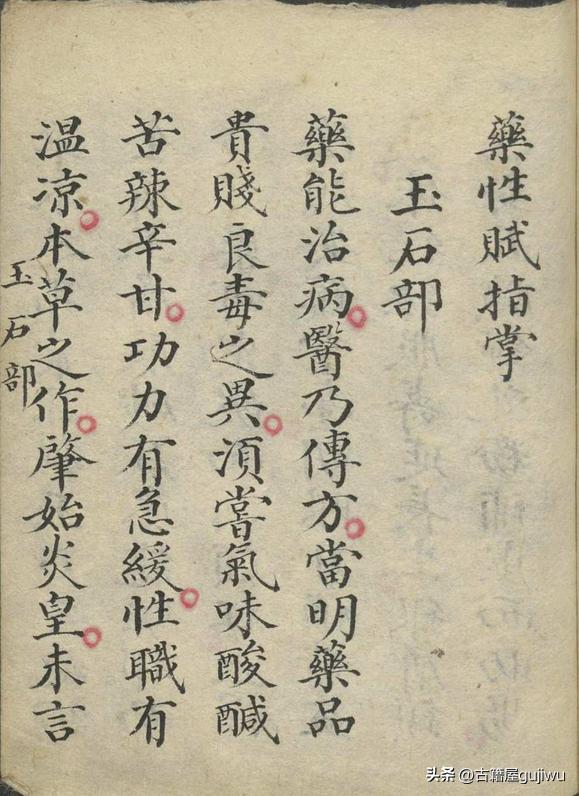 藥性賦指掌
玉石部
藥能治病。醫乃傳方。當明藥品
貴賤良毒之異。須嘗氣味酸醎
苦辣辛甘。功力有急緩。性職有
温凉。本草之作。肇始炎皇。未言
玉石部
头条 @古籍屋gujiwu